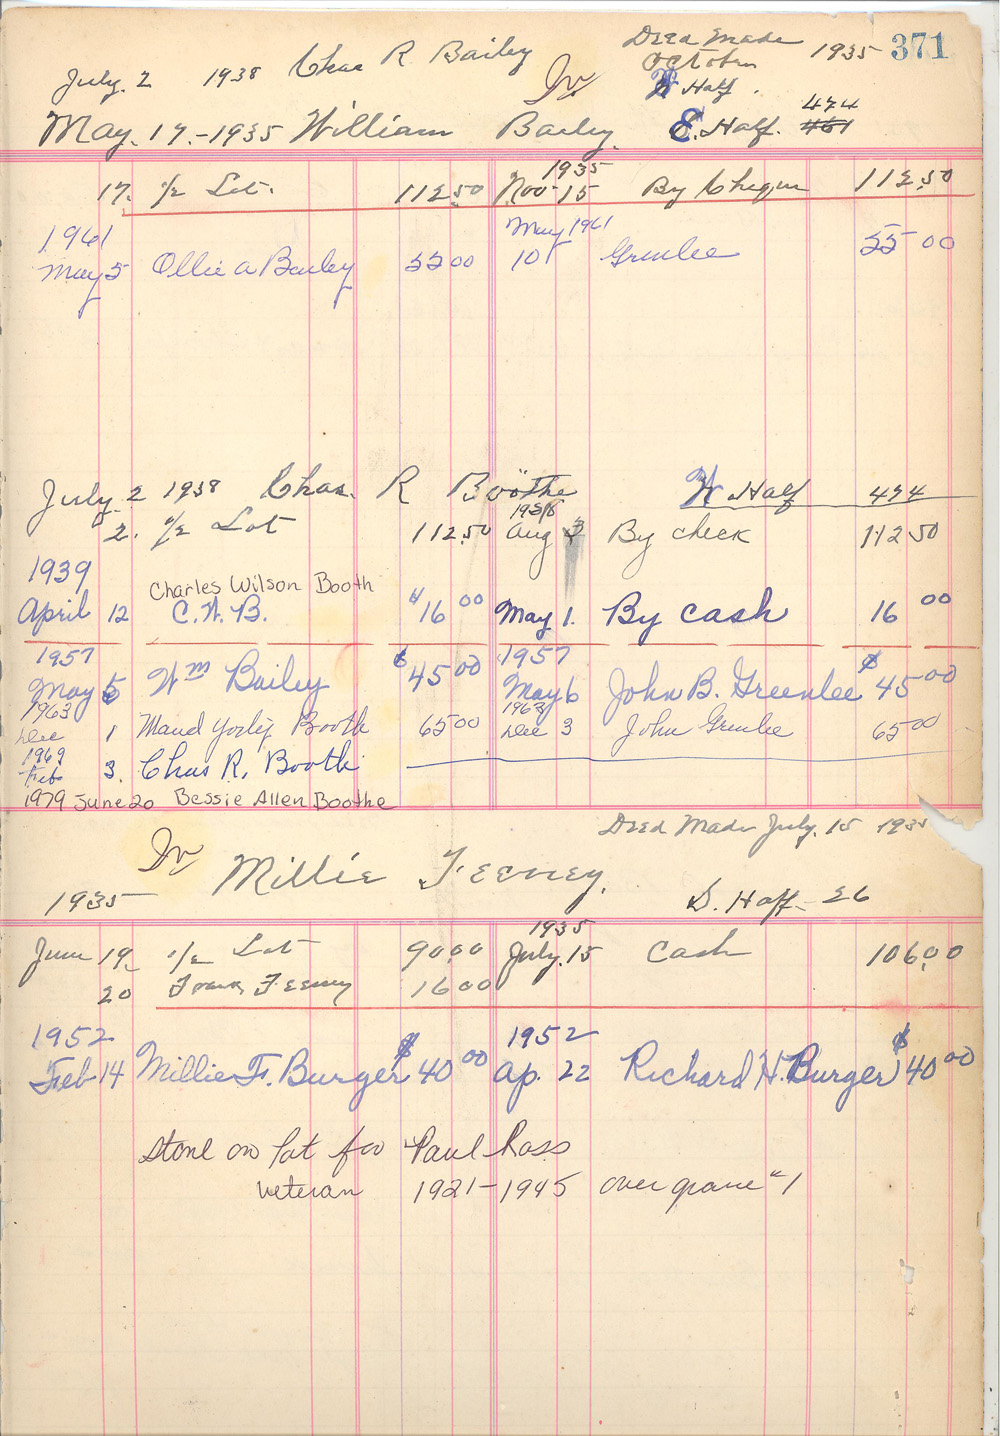 Deed Made
October 1935 371
July. 2 1938 Chas R Bailey
W Half.
474
May. 17.-1935 William Bailey. E. Half. 461
1935
17. 1/2 Lot. 112.50 Nov-15 By Cheque 112.50
1961 May 1961
May 5 Ollie A Bailey 55 00 10 Grenlee 55 00
July. 2 1938 Chas. R Boothe W Half 474
1938
2. 1/2 Lot 112.50 Aug 3 By check 112 50
1939
Charles Wilson Booth
April 12 C.W.B. 16 00 May 1. By cash 16 00
1957 1957
May 5 Wm Bailey $45 00 May 6 John B. Greenlee $45 00
1963 1963
Dec 1 Maud Booth 65 00 Dec 3 John Grenlee 65 00
1969
Feb 3. Chas R. Booth
1979 June 20 Bessie Allen Boothe
Deed Made July. 15 1935
Millie Feeney.
1935 S. Half- 26
1935
June 19. 1/2 Lot 90.00 July. 15 Cash 106.00
20 Frank Feeney 16 00
1952 1952
Feb 14 Millie F. Burger $40 00 Ap. 22 Richard H. Burger $40 00
Stone on Lot for Paul Ross
veteran 1921-1945 over grave #1